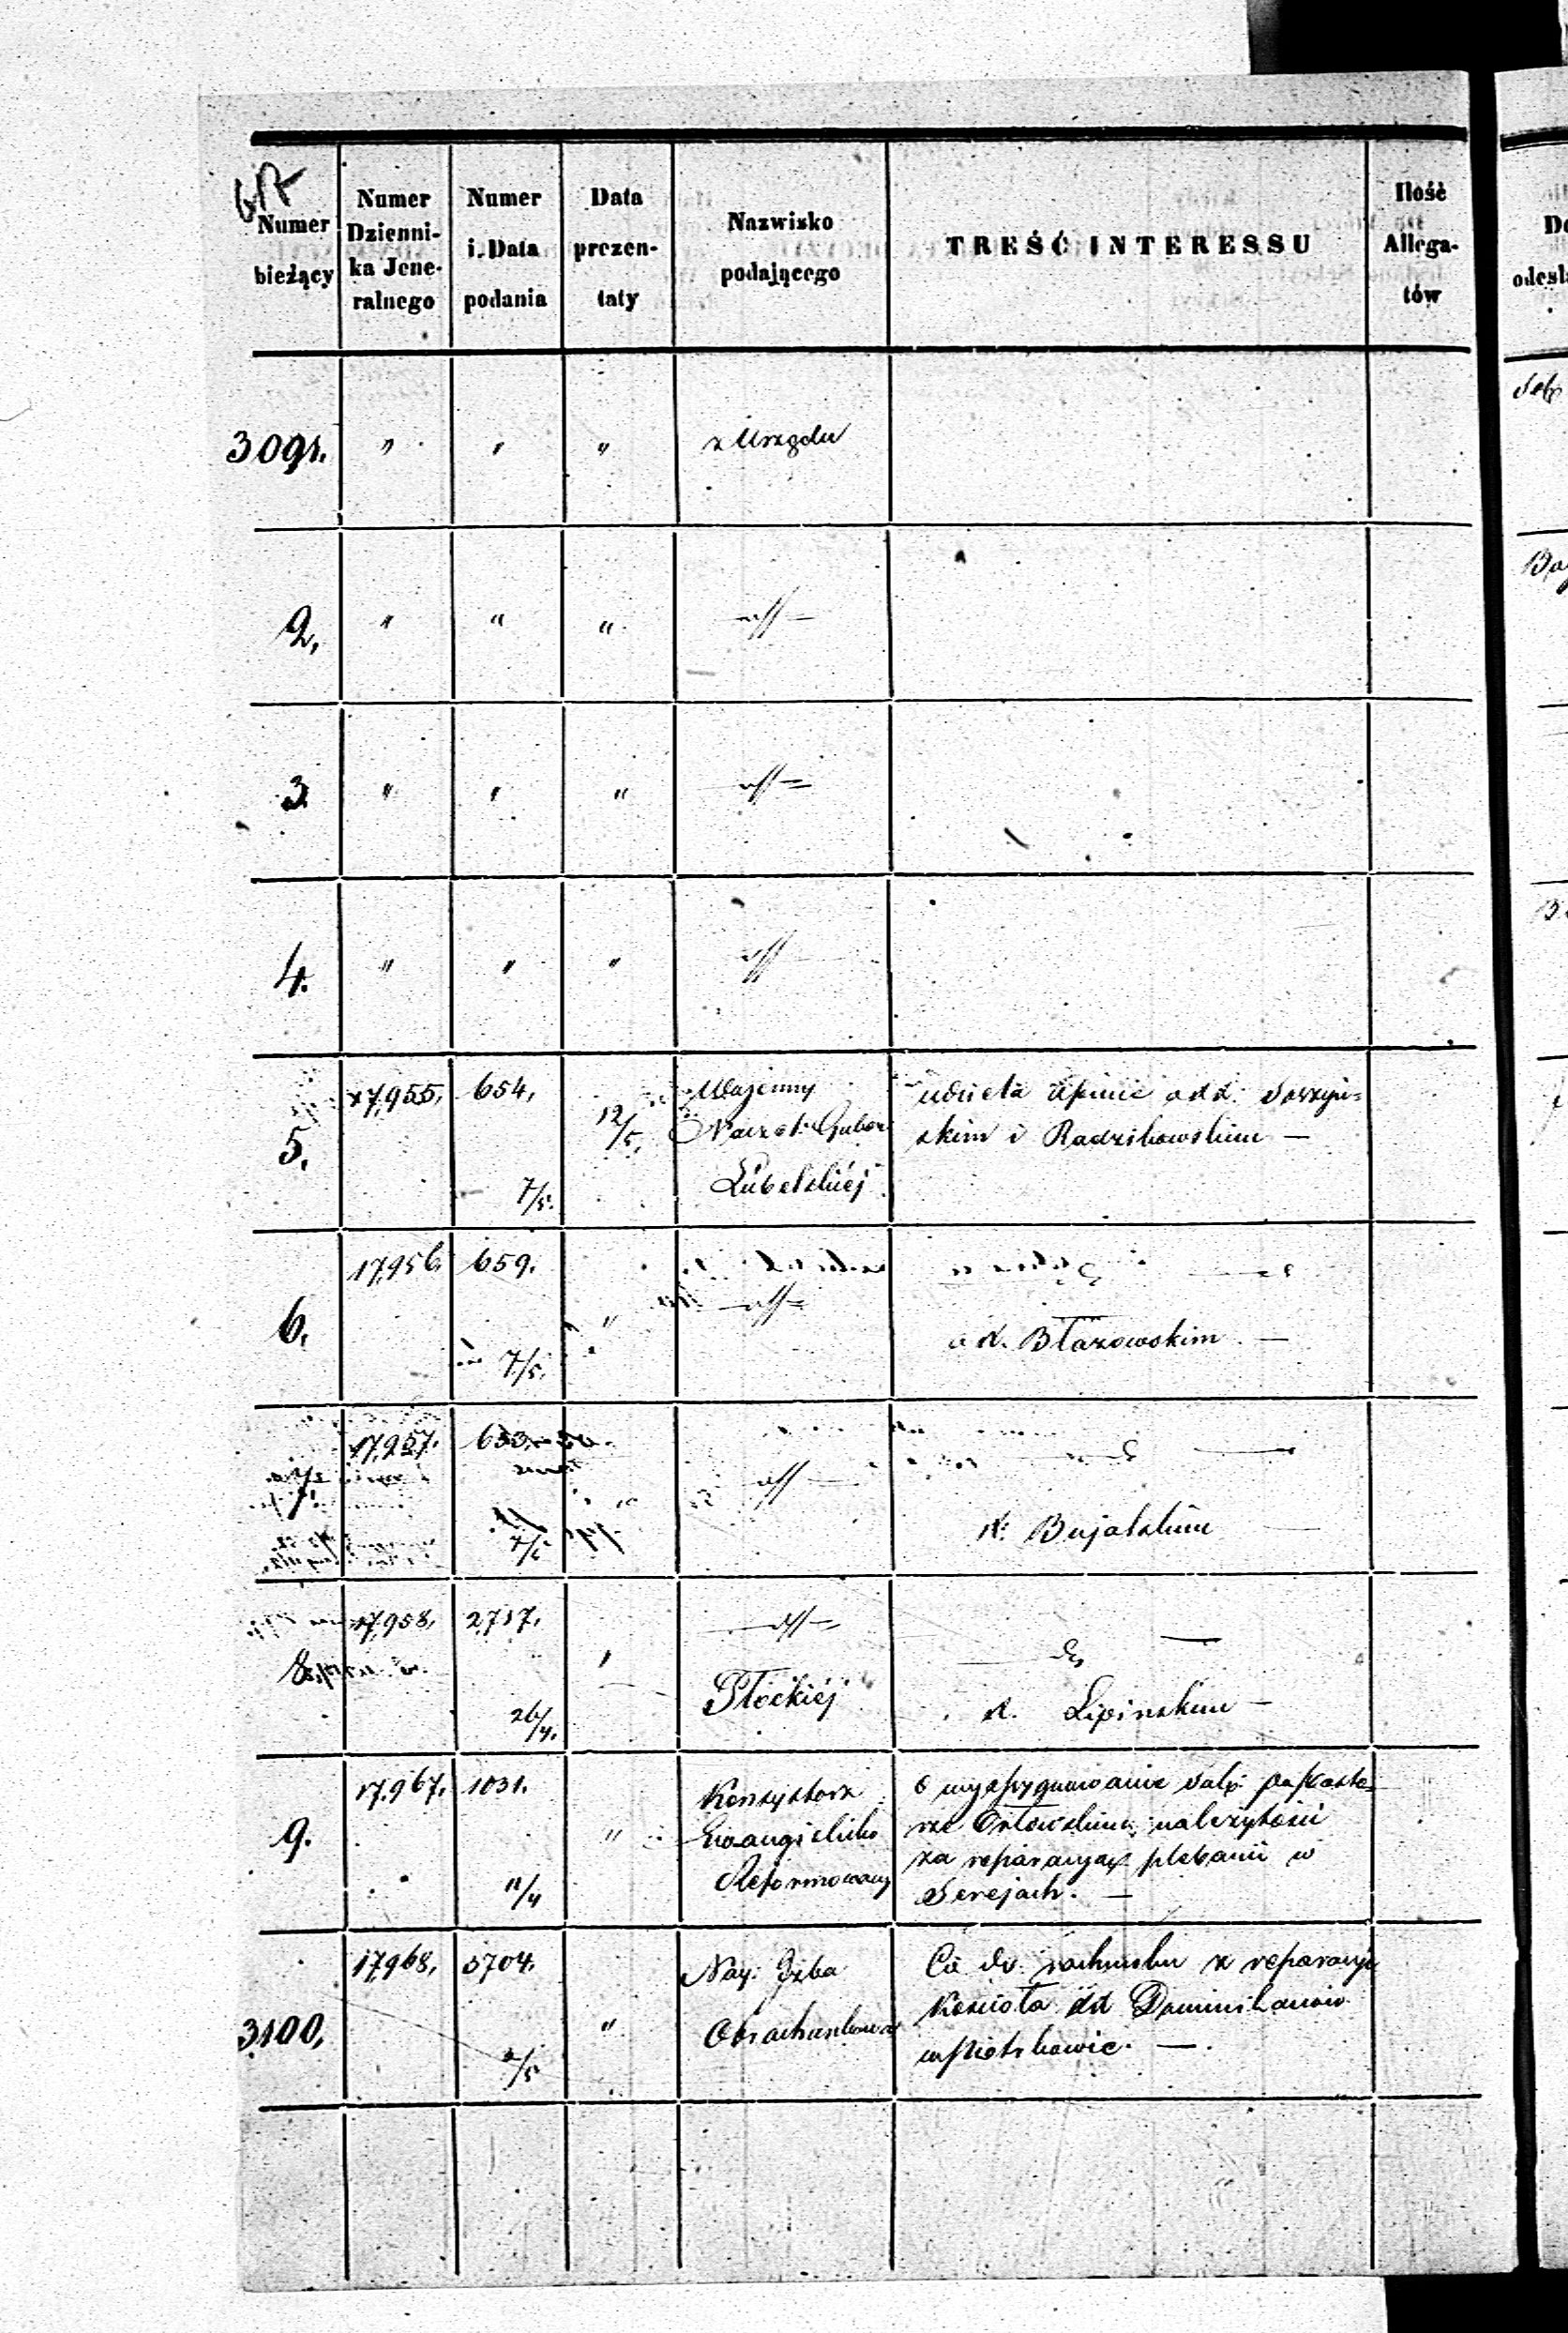 Numer
bieżący
Numer
Dzienni-
ka Jene-
ralnego
Numer
i Data
podania
Data
prezen-
taty
Nazwisko
podającego
TREŚĆ INTERESSU
Ilość
Allega-
tów
3091. " " " z Urzędu
2, " " "
3. " " "
4. " " "
5. 17,955. 654, 7/5. 12/5.
Wojenny
Naczel. Guber
Lubelskiéj
udziela opinie o
skim i Radzikowskim —
6. 17,956. 659. 7/5. "
o X. Błazowskim —
17,957. 653. 7/5 "
X. Bujalskim
8. 17,958. 2717. 26/4.
Płockiéj
X. Lipinskim —
9. 17,967. 1031. 11/4 "
Konsystorz
Ewangielicko
Reformowany
o wyassygnowanie
należytości
za reparacyą plebanii w
Serejach. —
3100. 17,968, 3704. 2/5 "
Nay: Izba
Obrachunkowa
Co do rachunku z reparacyi
Kościoła XX Dominikanów
—.